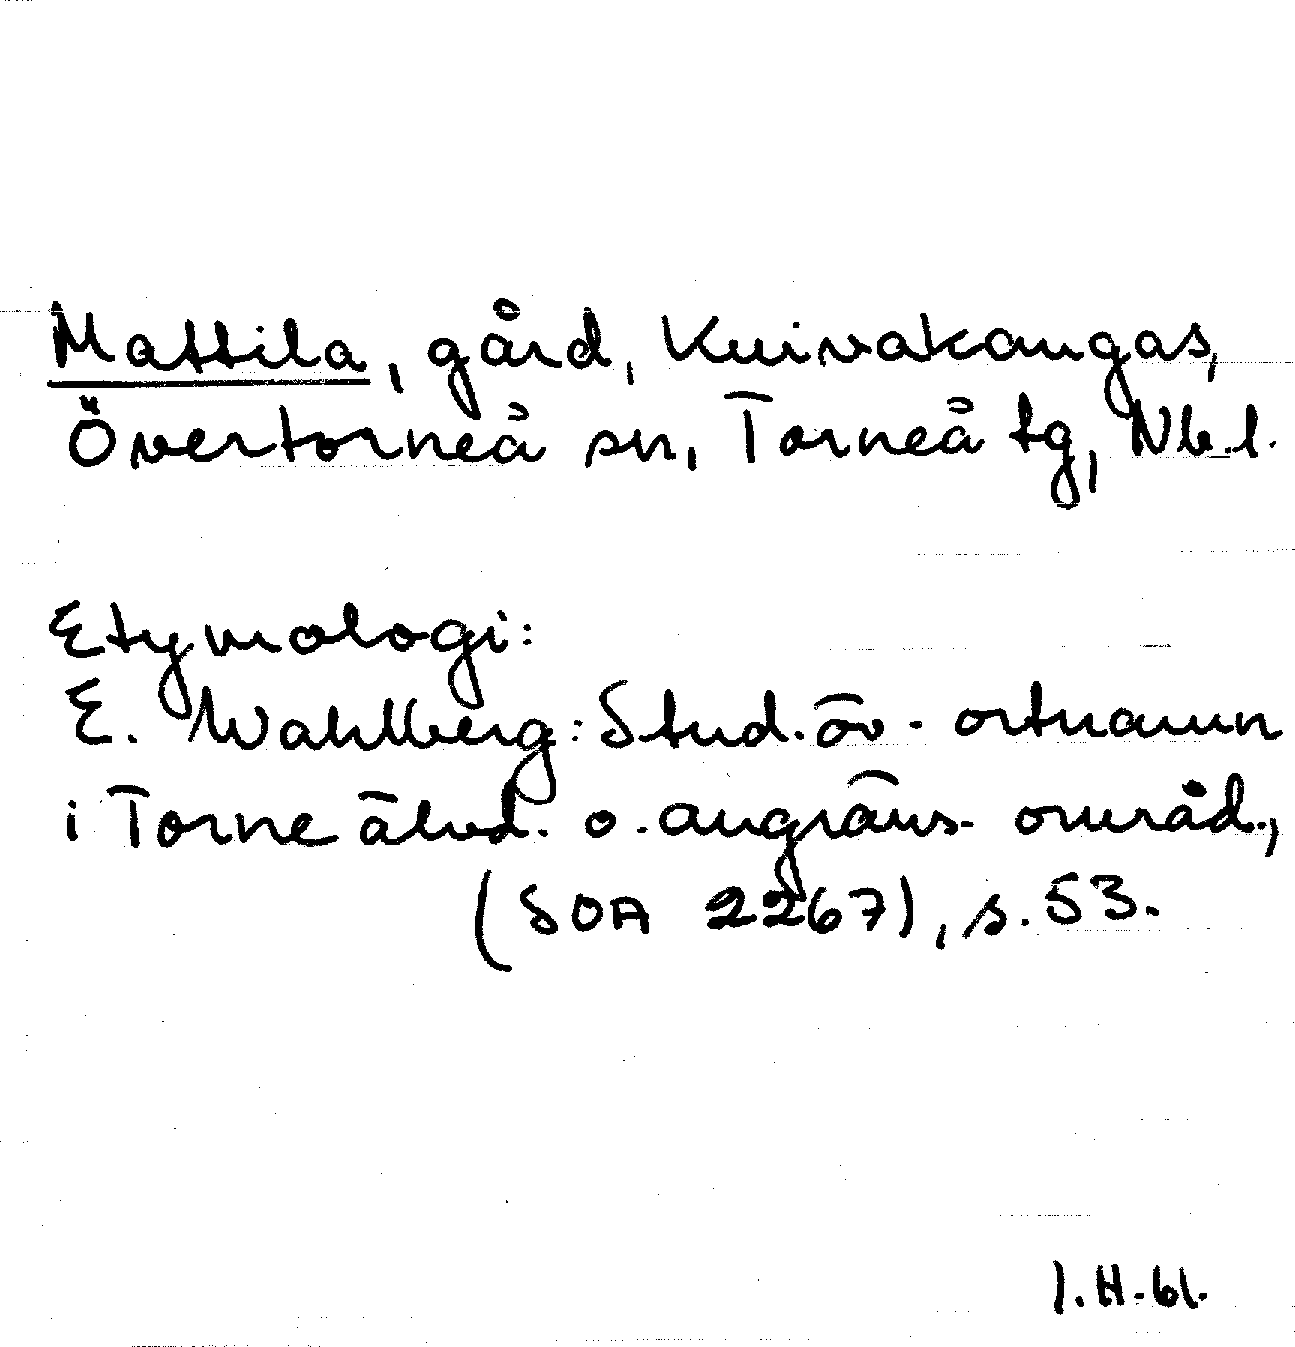 Mattila, gård, Kuivakangas,
Övertorneå sn, Torneå tg, Nb.l.
Etymologi:
E. Wahlberg: Stud. öv. ortnamn
i Torne älvd. o. angräns. områd.,
(SOA 2267), s. 53.
I.H.61.